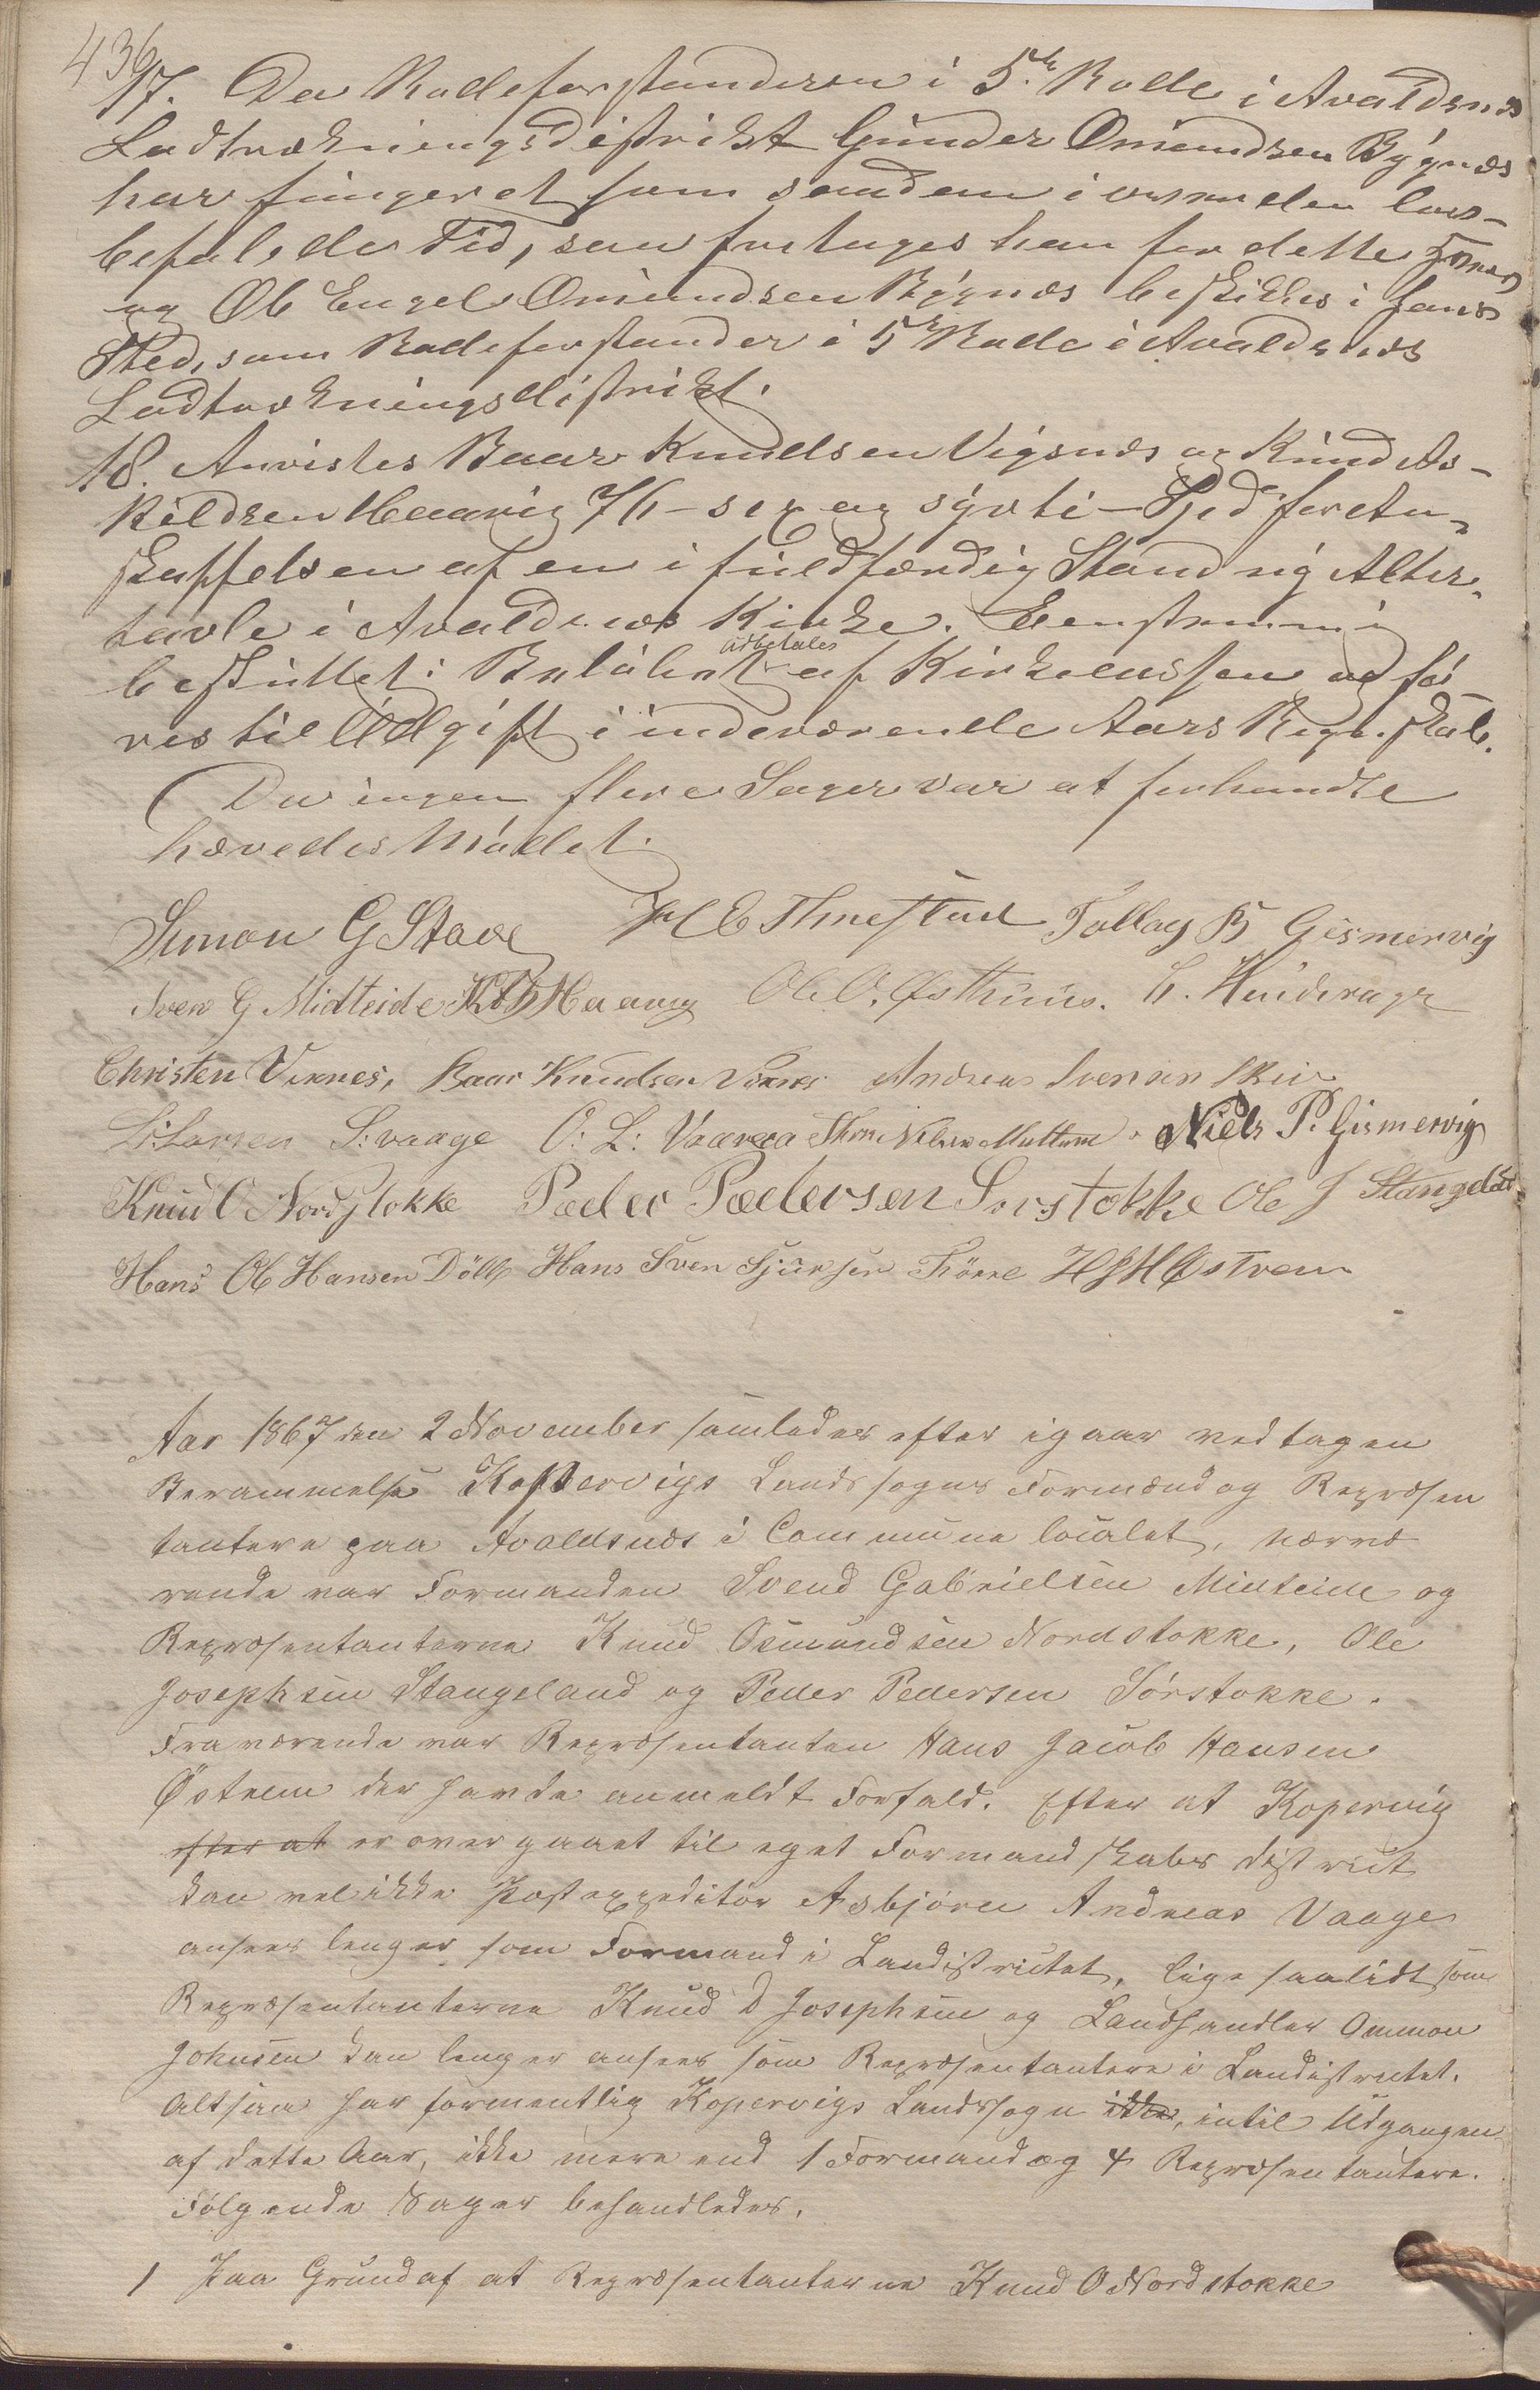 436
17. Da Rodeforstanderen i 5te Rode i Avaldsnes
Ladtrækningsdistrikt Gunder Omundsen Bygnes
har fungeret som saadan i over den lov-
befalede Tid, saa fritages han for dette
og Ole Engel Omundsen Bygnes beskikkes i hans
Sted, som Rodeforstander i 5te Rode i Avaldsnes
Ladtrækningsdistrikt.
18. Anvistes Baar Knudsen Vigsnes og Knud As-
kildsen Haavig 76 - sex og syvti - Spd for An-
skaffelsen af en i fuldfærdig Stand ny Alter-
tavle i Avaldsnes Kirke. Eenstemmig
besluttet: Beløbet udbetales af Kirkecassen og fø-
res til Udgift i indeværende Aars Regnskab.
Da ingen flere Sager var at forhandle
hævedes Mødet.
Simon G Stave Tollag B Gismervig
Sven G Midteide K A Haavig Ole O. Østhuus.
Christen Vixnes, Baar Knudsen Vixnes Andreas Svensen Skeie
L: Larsen S: vaage O: L: Vaaraa Niels P. Gismervig
Knud O Nordstokke Peder Pedersen Sørstokke Ole J Stangeland
Hans Ole Hansen Døle Hans Sven Sjursen HJHØstrem
Aar 1867 den 2 November samledes efter igaar vedtagen
Berammelse Kopervigs Landssogns Formænd og Repræsen
tantere paa Avaldsnes i Communelocalet, nærvæ
rende var Formanden Svend Gabrielsen Midteide og
Repræsentanterne Knud Osmundsen Nordstokke, Ole
Josephsen Stangeland og Peder Pedersen Sørstokke.
Fraværende var Repræsentanten Hans Jacob Hansen
Østrem der havde anmeldt Forfald. Efter at Kopervig
efter at er overgaaet til eget Formandskabs district
kan vel ikke Postexpeditør Asbjørn Andreas Vaage
ansees lenger som Formand i Landistrictet, lige saalidt som
Repræsentanterne Knud D Josephsen og Landhandler Ommon
Johnsen kan lenger ansees som Repræsentantere i Landistrictet.
Altsaa har formentlig Kopervigs Landssogn ikke, intil Udgangen
af dette Aar, ikke mere end 1 Formand og 4 Repræsentantere.
Følgende Sager behandledes.
1 Paa Grund af at Repræsentanterne Knud O Nordstokke